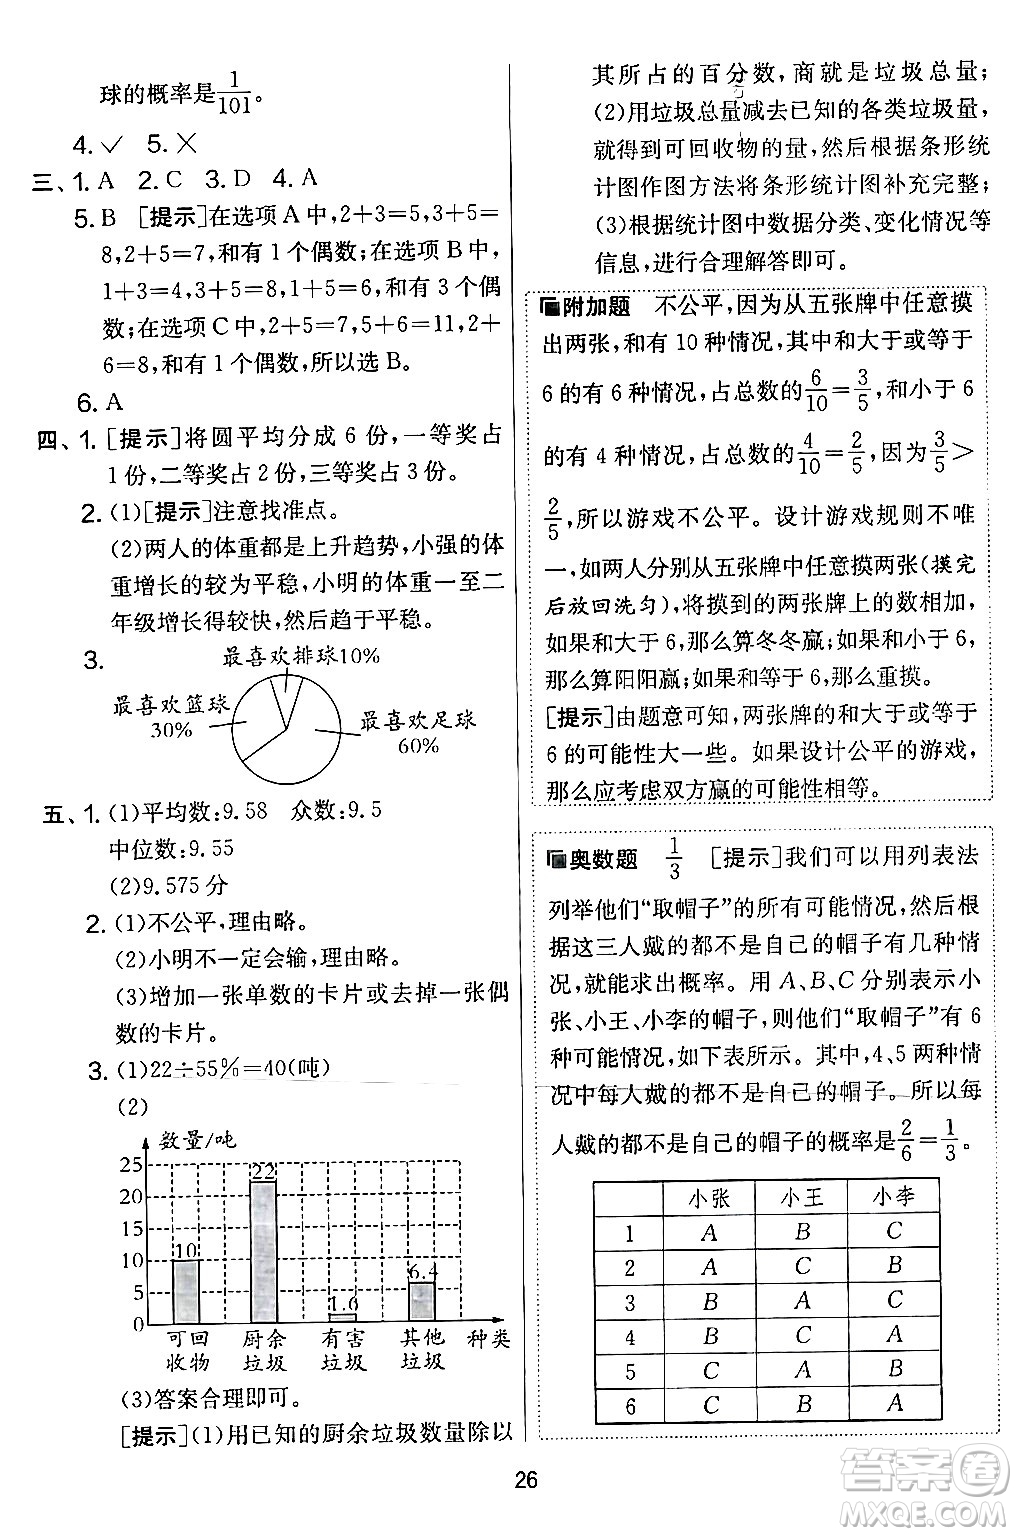 球的概率是1/101。
4.✓ 5.✕
三、1. A 2. C 3. D 4. A
5. B [提示]在选项 A 中,2+3=5,3+5=
8,2+5=7,和有 1 个偶数;在选项 B 中,
1+3=4,3+5=8,1+5=6,和有 3 个偶
数;在选项 C 中,2+5=7,5+6=11,2+
6=8,和有 1 个偶数,所以选 B。
6. A
四、1. [提示]将圆平均分成 6 份,一等奖占
1 份,二等奖占 2 份,三等奖占 3 份。
2. (1)[提示]注意找准点。
(2)两人的体重都是上升趋势,小强的体
重增长的较为平稳,小明的体重一至二
年级增长得较快,然后趋于平稳。
3.
最喜欢排球10%
最喜欢篮球
30%
最喜欢足球
60%
五、1. (1)平均数:9.58 众数:9.5
中位数:9.55
(2)9.575分
2. (1)不公平,理由略。
(2)小明不一定会输,理由略。
(3)增加一张单数的卡片或去掉一张偶
数的卡片。
3. (1)22÷55%=40(吨)
(2)
数量/吨
25
20
15
10
5
0
10
22
1.6
6.4
可回 厨余 有害 其他 种类
收物 垃圾 垃圾 垃圾
(3)答案合理即可。
[提示](1)用已知的厨余垃圾数量除以
其所占的百分数,商就是垃圾总量;
(2)用垃圾总量减去已知的各类垃圾量,
就得到可回收物的量,然后根据条形统
计图作图方法将条形统计图补充完整;
(3)根据统计图中数据分类、变化情况等
信息,进行合理解答即可。
附加题 不公平,因为从五张牌中任意摸
出两张,和有 10 种情况,其中和大于或等于
6 的有 6 种情况,占总数的6/10=3/5,和小于 6
的有 4 种情况,占总数的4/10=2/5,因为3/5>
2/5,所以游戏不公平。设计游戏规则不唯
一,如两人分别从五张牌中任意摸两张(摸完
后放回洗匀),将摸到的两张牌上的数相加,
如果和大于 6,那么算冬冬赢;如果和小于 6,
那么算阳阳赢;如果和等于 6,那么重摸。
[提示]由题意可知,两张牌的和大于或等于
6 的可能性大一些。如果设计公平的游戏,
那么应考虑双方赢的可能性相等。
奥数题 1/3 [提示]我们可以用列表法
列举他们“取帽子”的所有可能情况,然后根
据这三人戴的都不是自己的帽子有几种情
况,就能求出概率。用 A、B、C 分别表示小
张、小王、小李的帽子,则他们“取帽子”有 6
种可能情况,如下表所示。其中,4、5 两种情
况中每人戴的都不是自己的帽子。所以每
人戴的都不是自己的帽子的概率是2/6=1/3。
小张 小王 小李
1 A B C
2 A C B
3 B A C
4 B C A
5 C A B
6 C B A
26
答案圈
MXQE.COM